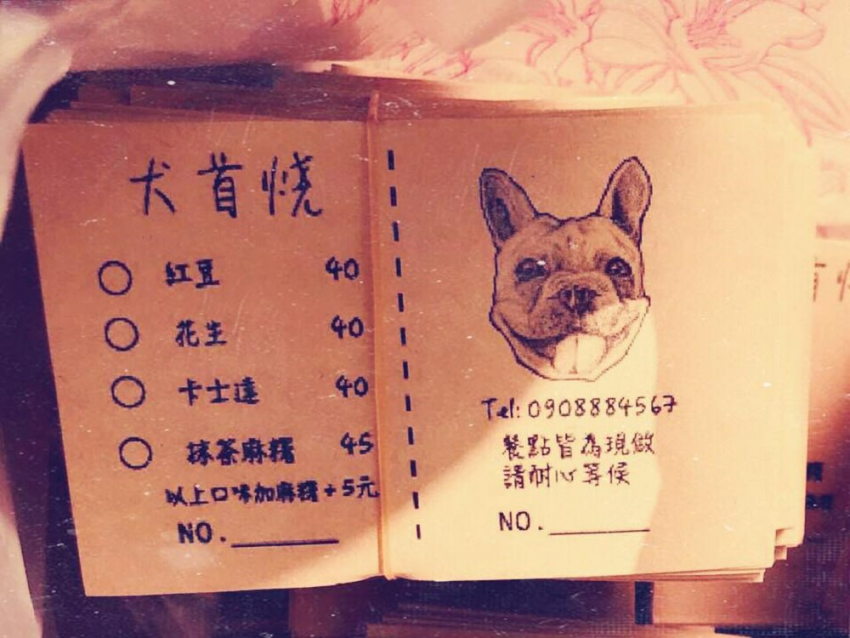 犬首燒
紅豆 40
花生 40
卡士達 40
抹茶麻糬 45
以上口味加麻糬+5元
NO.
Tel: 0908884567
餐點皆為現做
請耐心等候
NO.